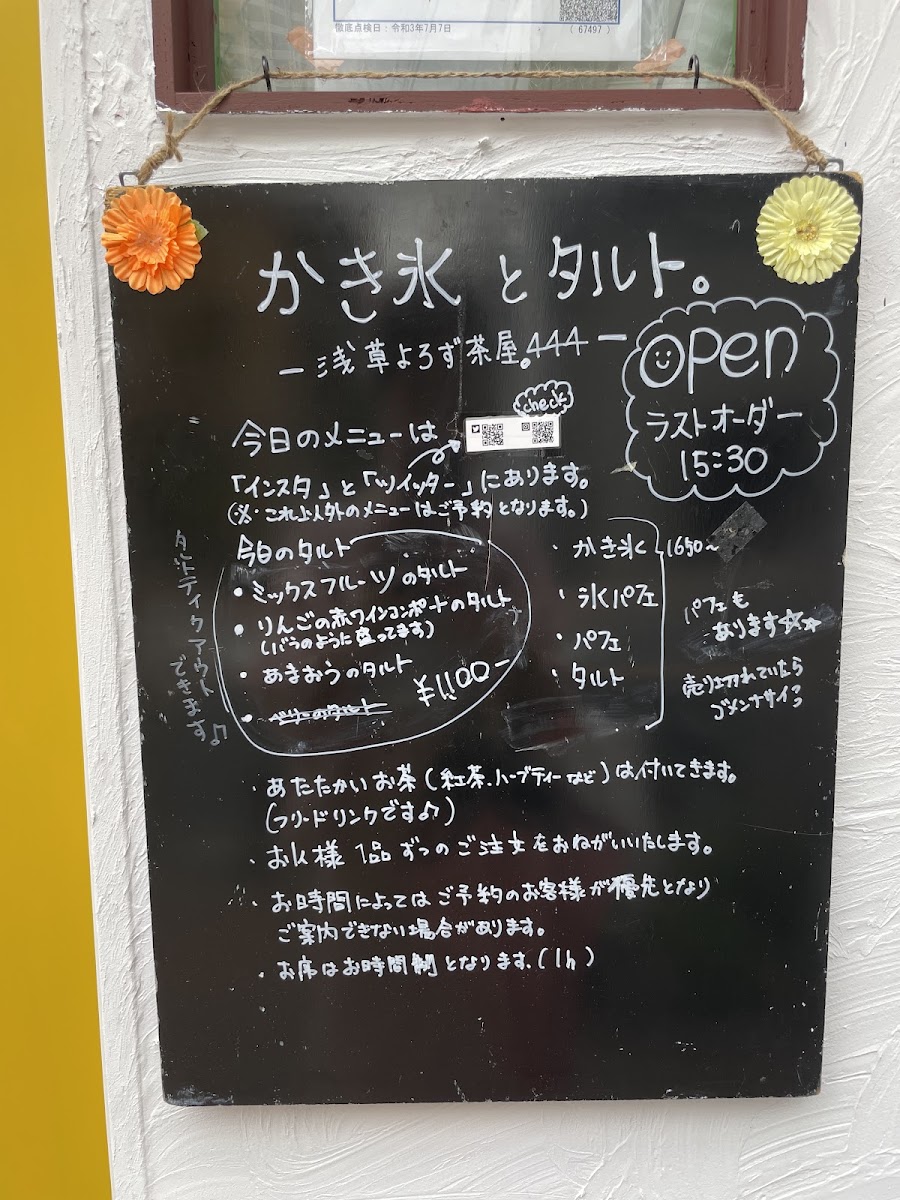 徹底点検日：令和3年7月7日
( 67497 )
かき氷とタルト。
ー浅草よろず茶屋。444ー
open
ラストオーダー
15:30
check
今日のメニューは
「インスタ」と「ツイッター」にあります。
(※これ以外のメニューはご予約となります。)
今日のタルト
・ミックスフルーツのタルト
・りんごの赤ワインコンポートのタルト
(バラのように盛ってます)
・あまおうのタルト
¥1100-
・ベリーのタルト
タルトテイクアウト
できます♪
・かき氷 1650~
・氷パフェ
・パフェ
・タルト
パフェも
あります☆★
売り切れていたら
ゴメンナサイ
・あたたかいお茶(紅茶、ハーブティーなど)は付いてきます。
(フリードリンクです♪)
・お1人様1品ずつのご注文をおねがいいたします。
・お時間によってはご予約のお客様が優先となり
ご案内できない場合があります。
・お席はお時間制となります。(1h)